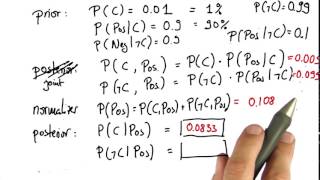 prior: P(C) = 0.01 = 1% P(¬C) = 0.99
P(Pos|C) = 0.9 = 90%
P(Neg|¬C) = 0.9 P(Pos|¬C) = 0.1
posterior:
joint P(C, Pos) = P(C) · P(Pos|C) = 0.009
P(¬C, Pos) = P(¬C) · P(Pos|¬C) = 0.099
normalizer P(Pos) = P(C, Pos) + P(¬C, Pos) = 0.108
posterior: P(C|Pos) = 0.0833
P(¬C|Pos) =